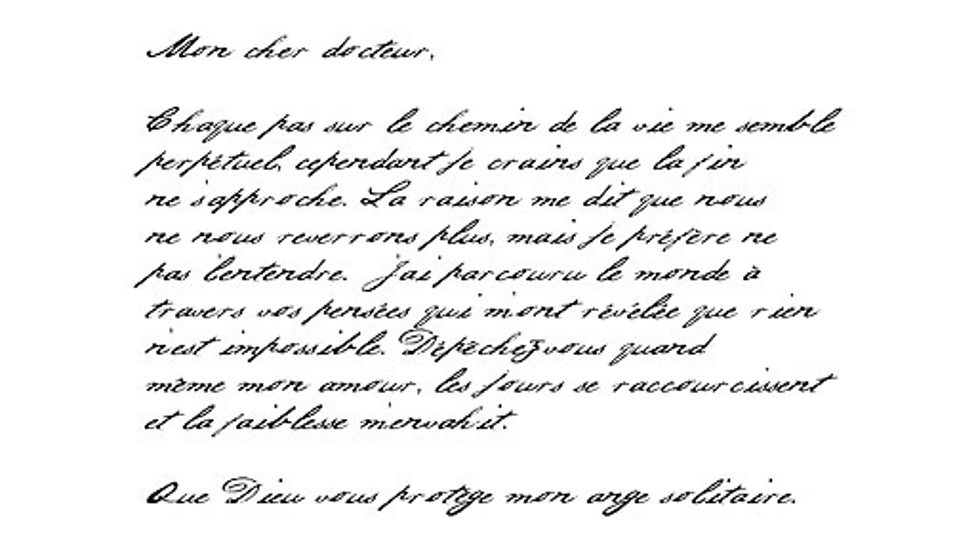 Mon cher docteur,
Chaque pas sur le chemin de la vie me semble
perpétuel, cependant je crains que la fin
ne s'approche. La raison me dit que nous
ne nous reverrons plus, mais je préfère ne
pas l'entendre. J'ai parcouru le monde à
travers vos pensées qui m'ont révélée que rien
n'est impossible. Dépêchez vous quand
même mon amour, les jours se raccourcissent
et la faiblesse m'envahit.
Que Dieu vous protège mon ange solitaire.